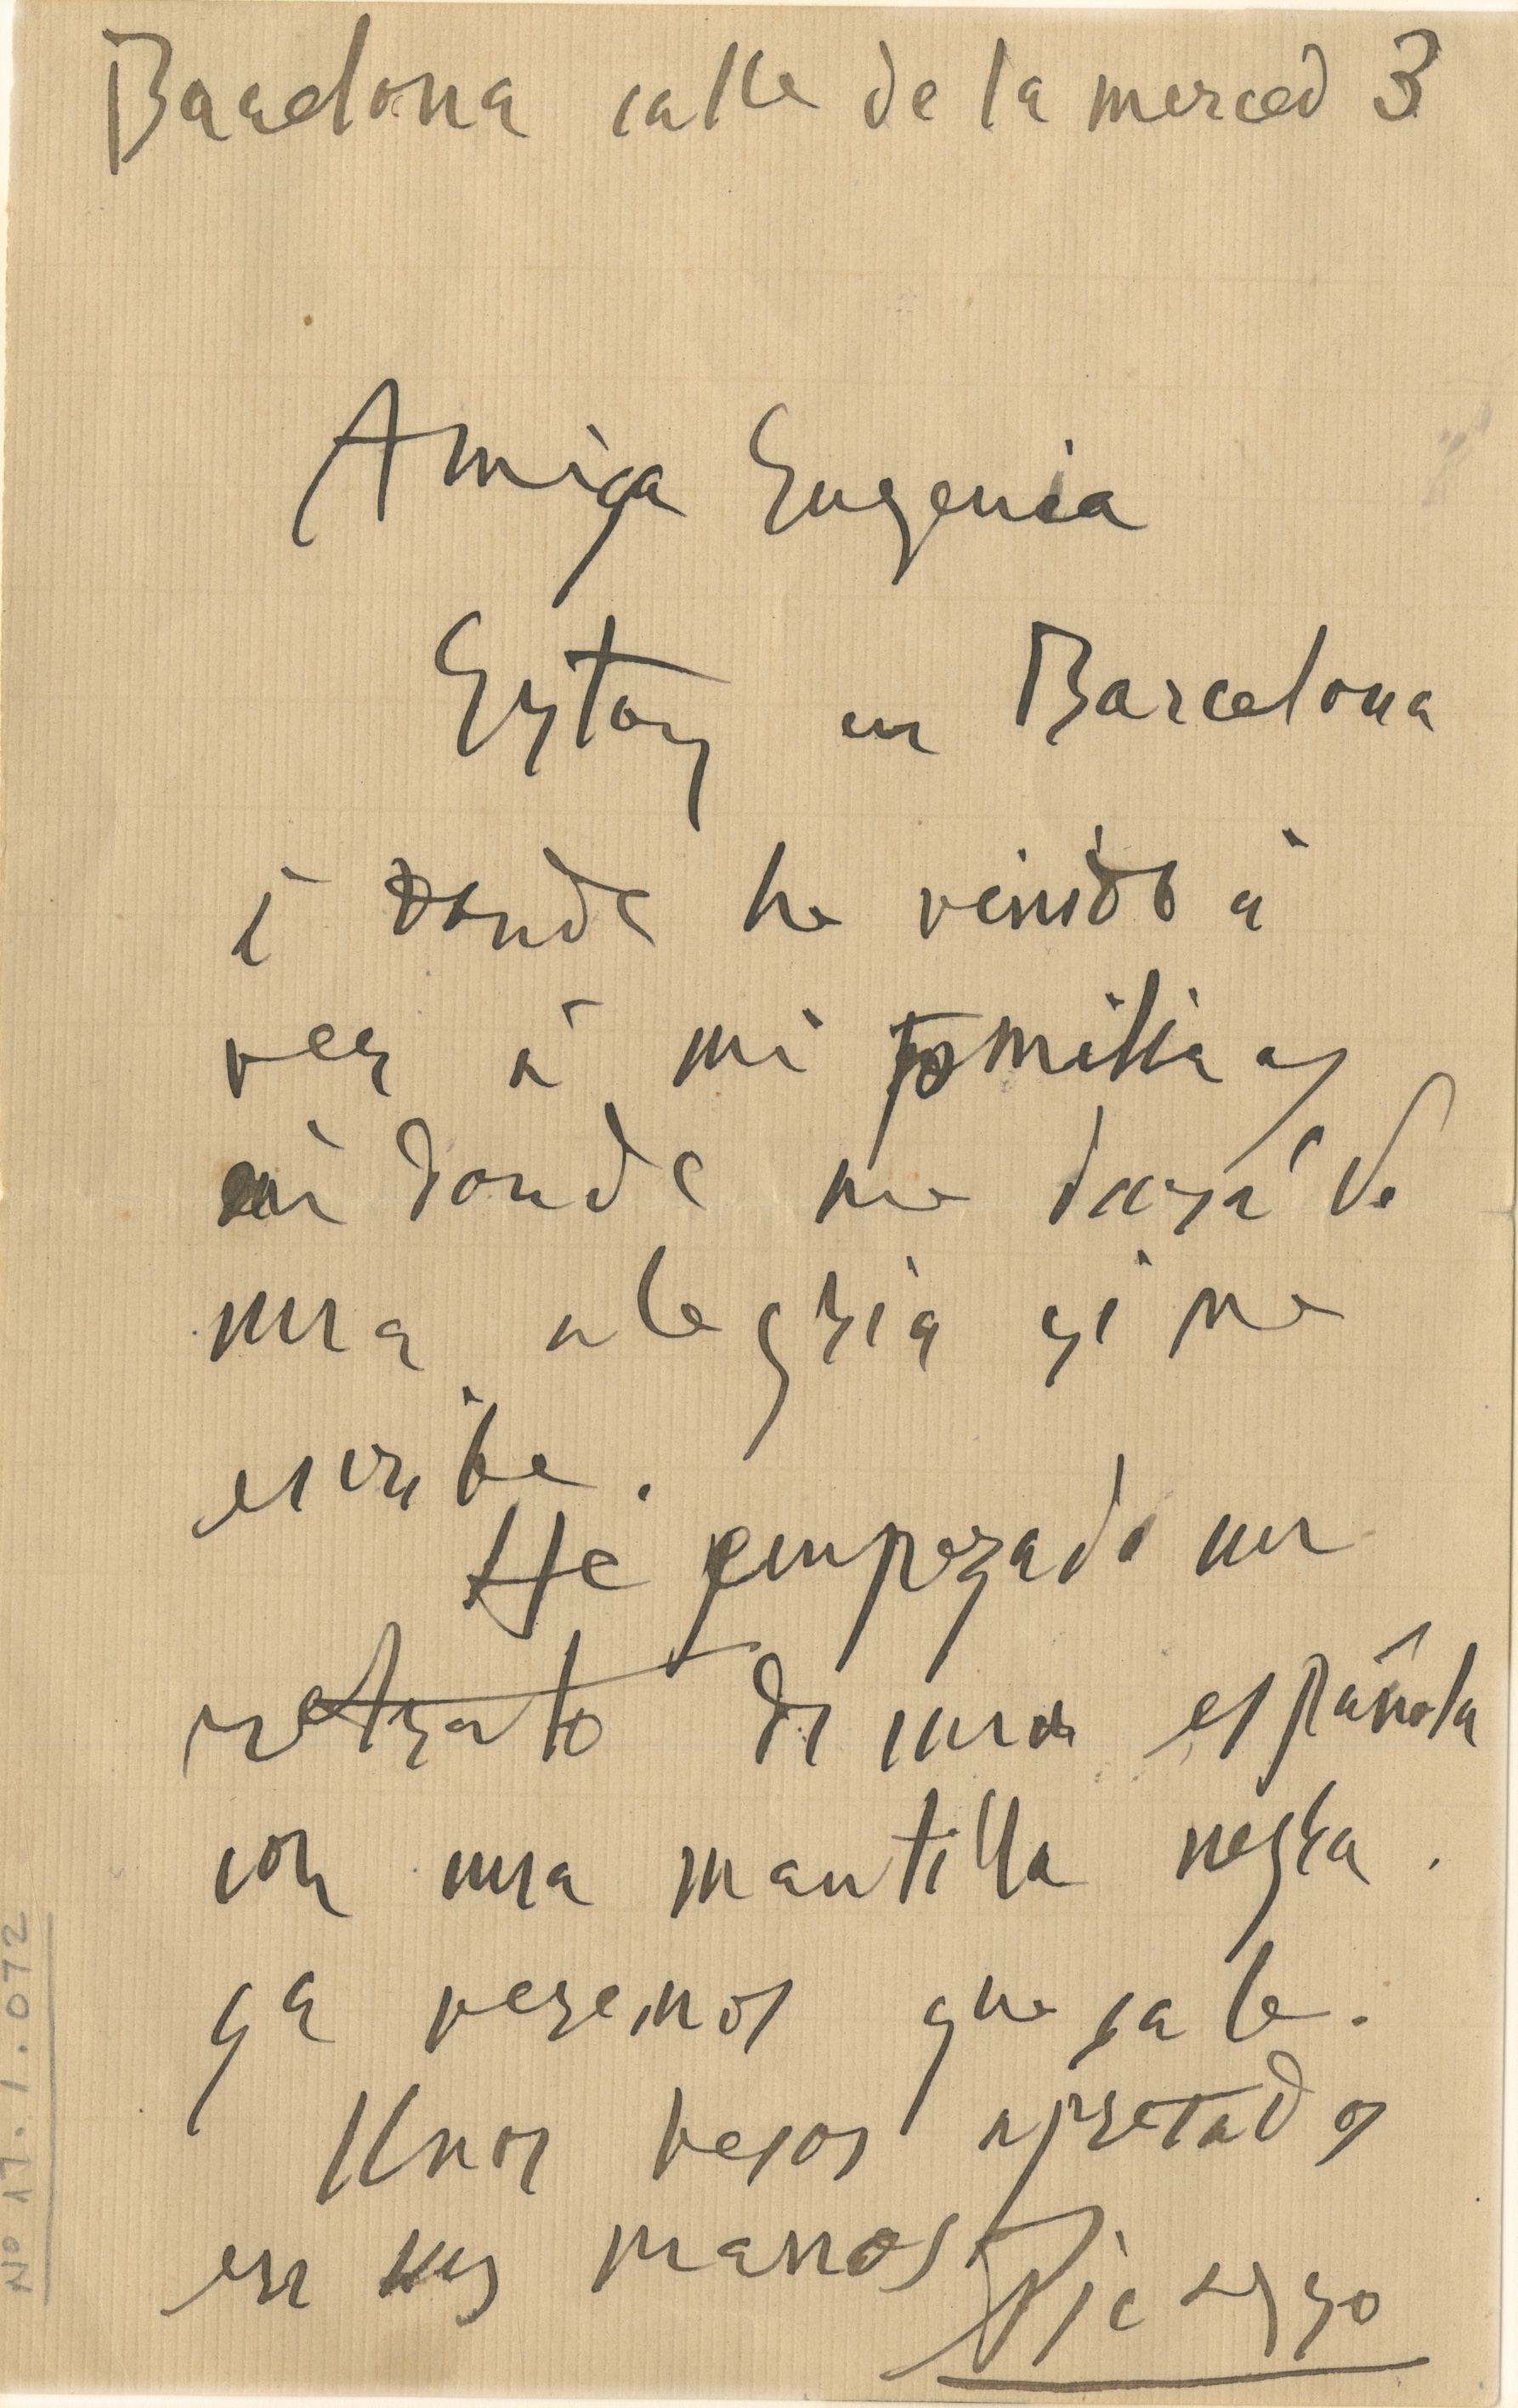 Barcelona calle de la merced 3
Amiga Eugenia
Estoy en Barcelona
á donde he venido á
ver á mi familia y
á donde me dará V.
una alegria si me
escribe.
He empezado un
retrato de una española
con una mantilla negra.
ya veremos que sale.
Unos besos apretados
en sus manos Picasso
Nº 17.1.072